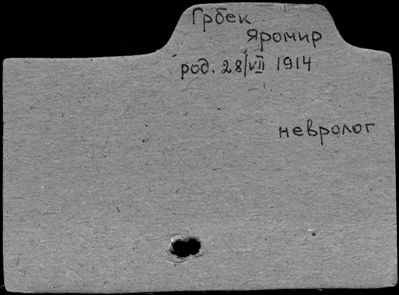 Грбек
Яромир
род. 28/VII 1914
невролог